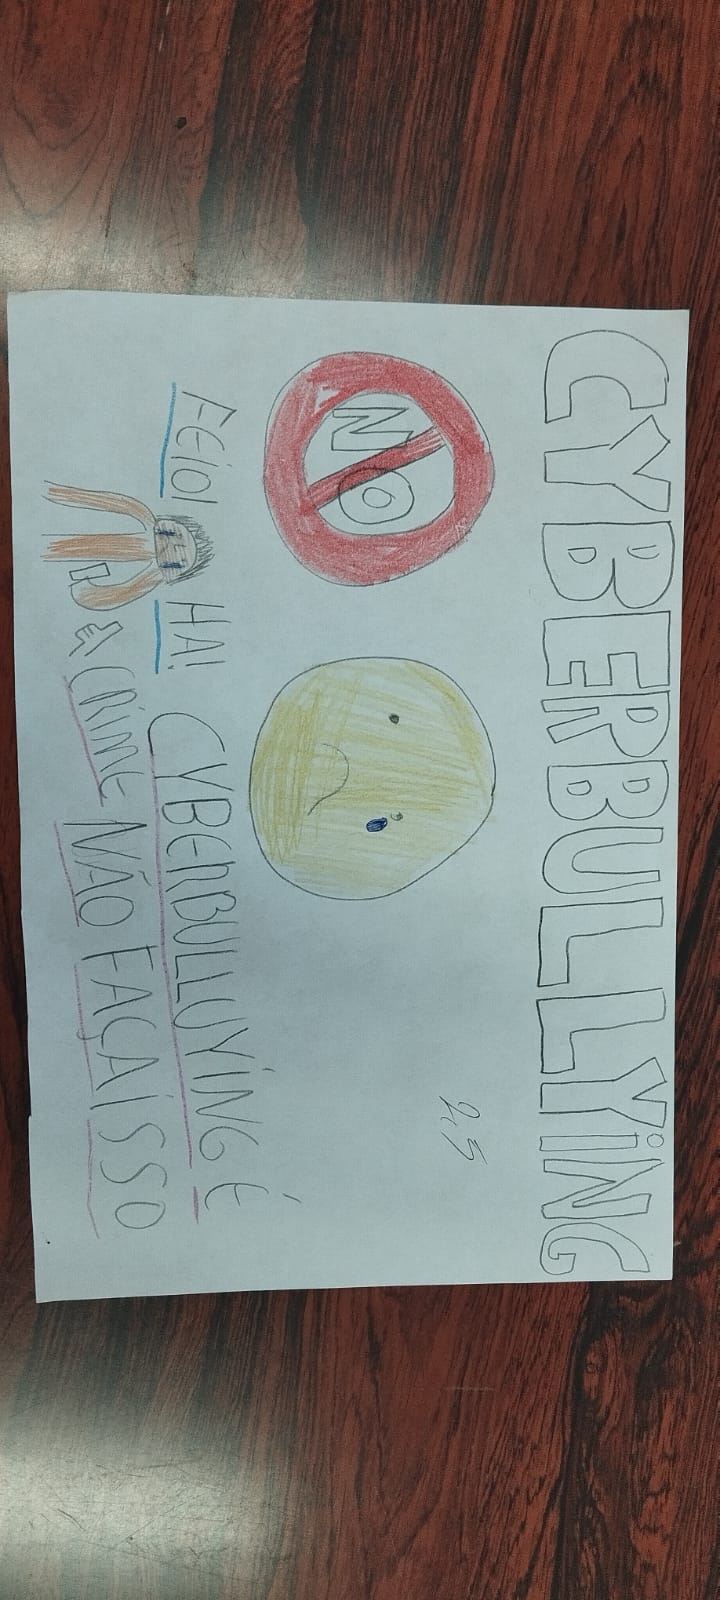 CYBERBULLYING
2,5
NO
FEIO! HA!
CYBERBULLYING É
CRIME NÃO FAÇA ISSO